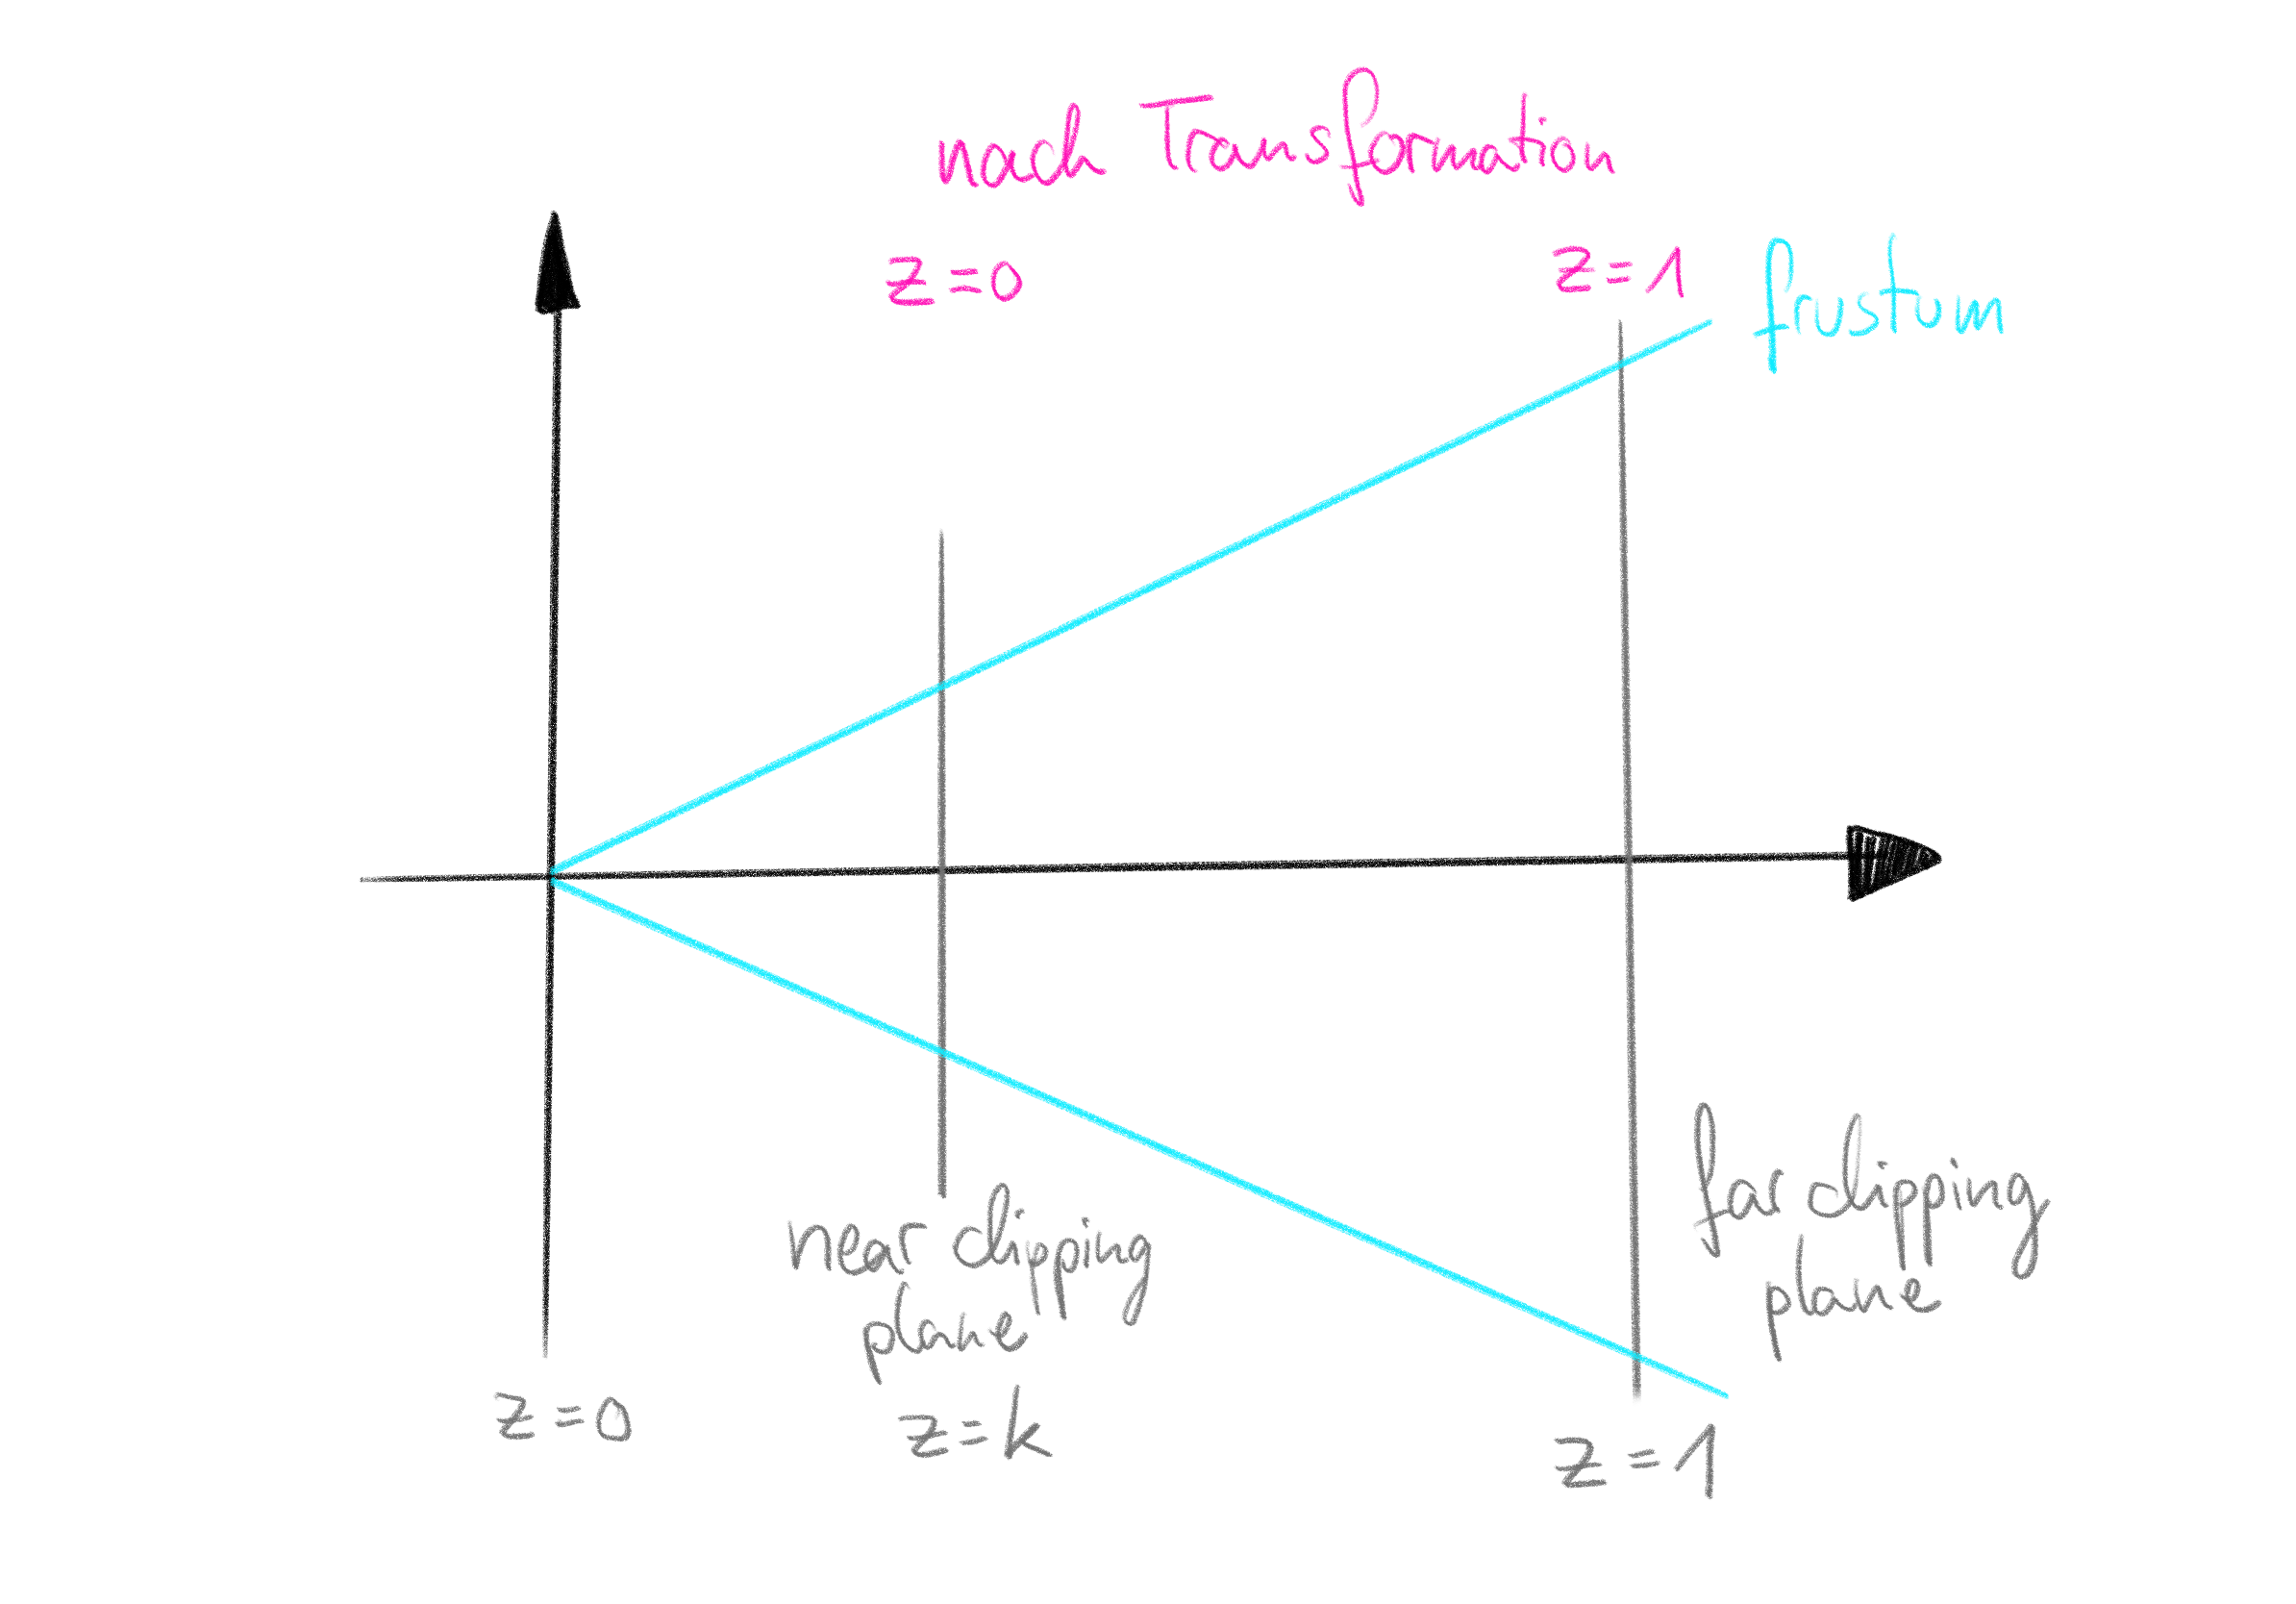 nach Transformation
z=0
z=1
frustum
near clipping
plane
z=k
far clipping
plane
z=0
z=1